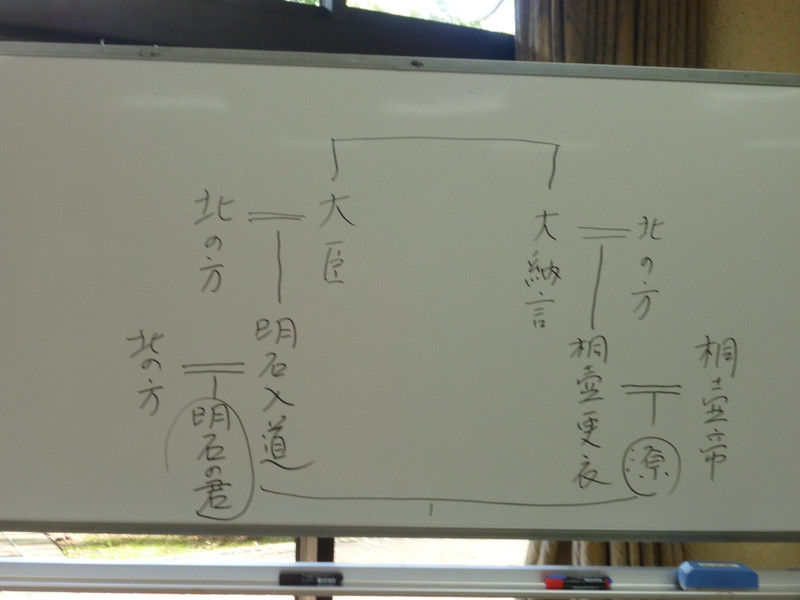 北の方
大納言
大臣
北の方
桐壺帝
桐壺更衣
源
明石入道
明石の君
北の方